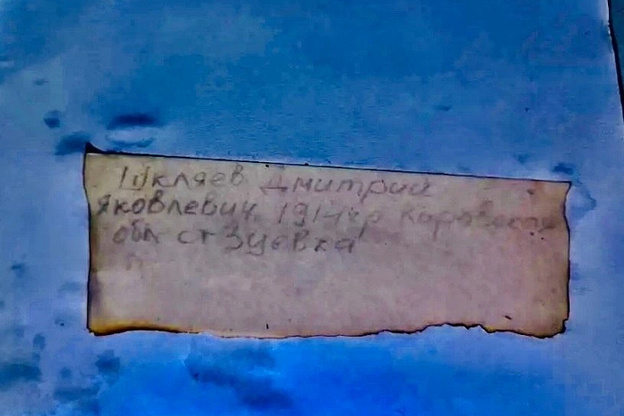 Шкляев Дмитрий
Яковлевич 1914 гр Кировская
обл ст Зуевка